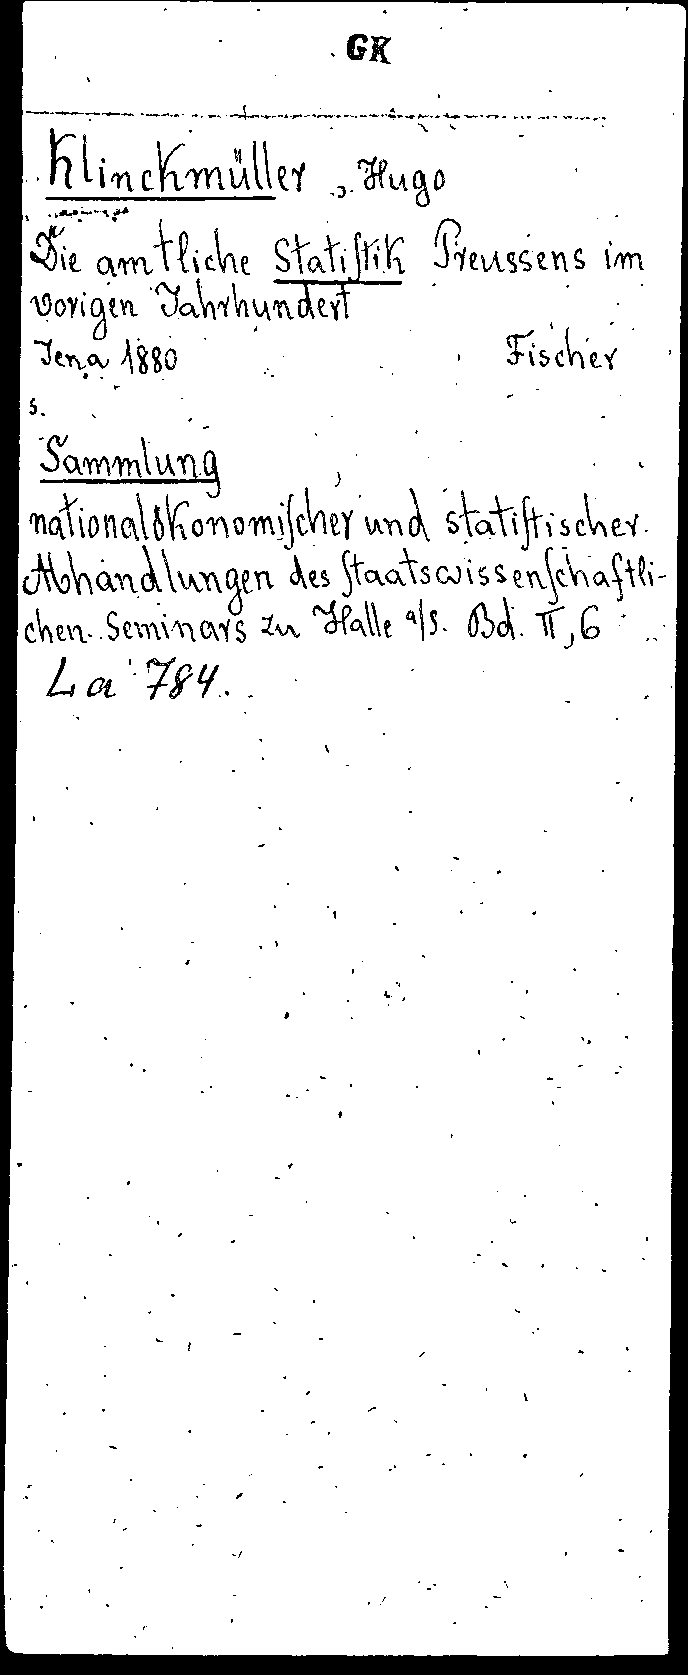 GK
Klinckmüller, Hugo
Die amtliche Statiſtik Preussens im
vorigen Jahrhundert
Jena 1880 Fischer
s.
Sammlung
nationalökonomiſcher und statiſtischer
Abhandlungen des Staatswissenſchaftli-
chen Seminars zu Halle a/S. Bd. II, 6
La 784.